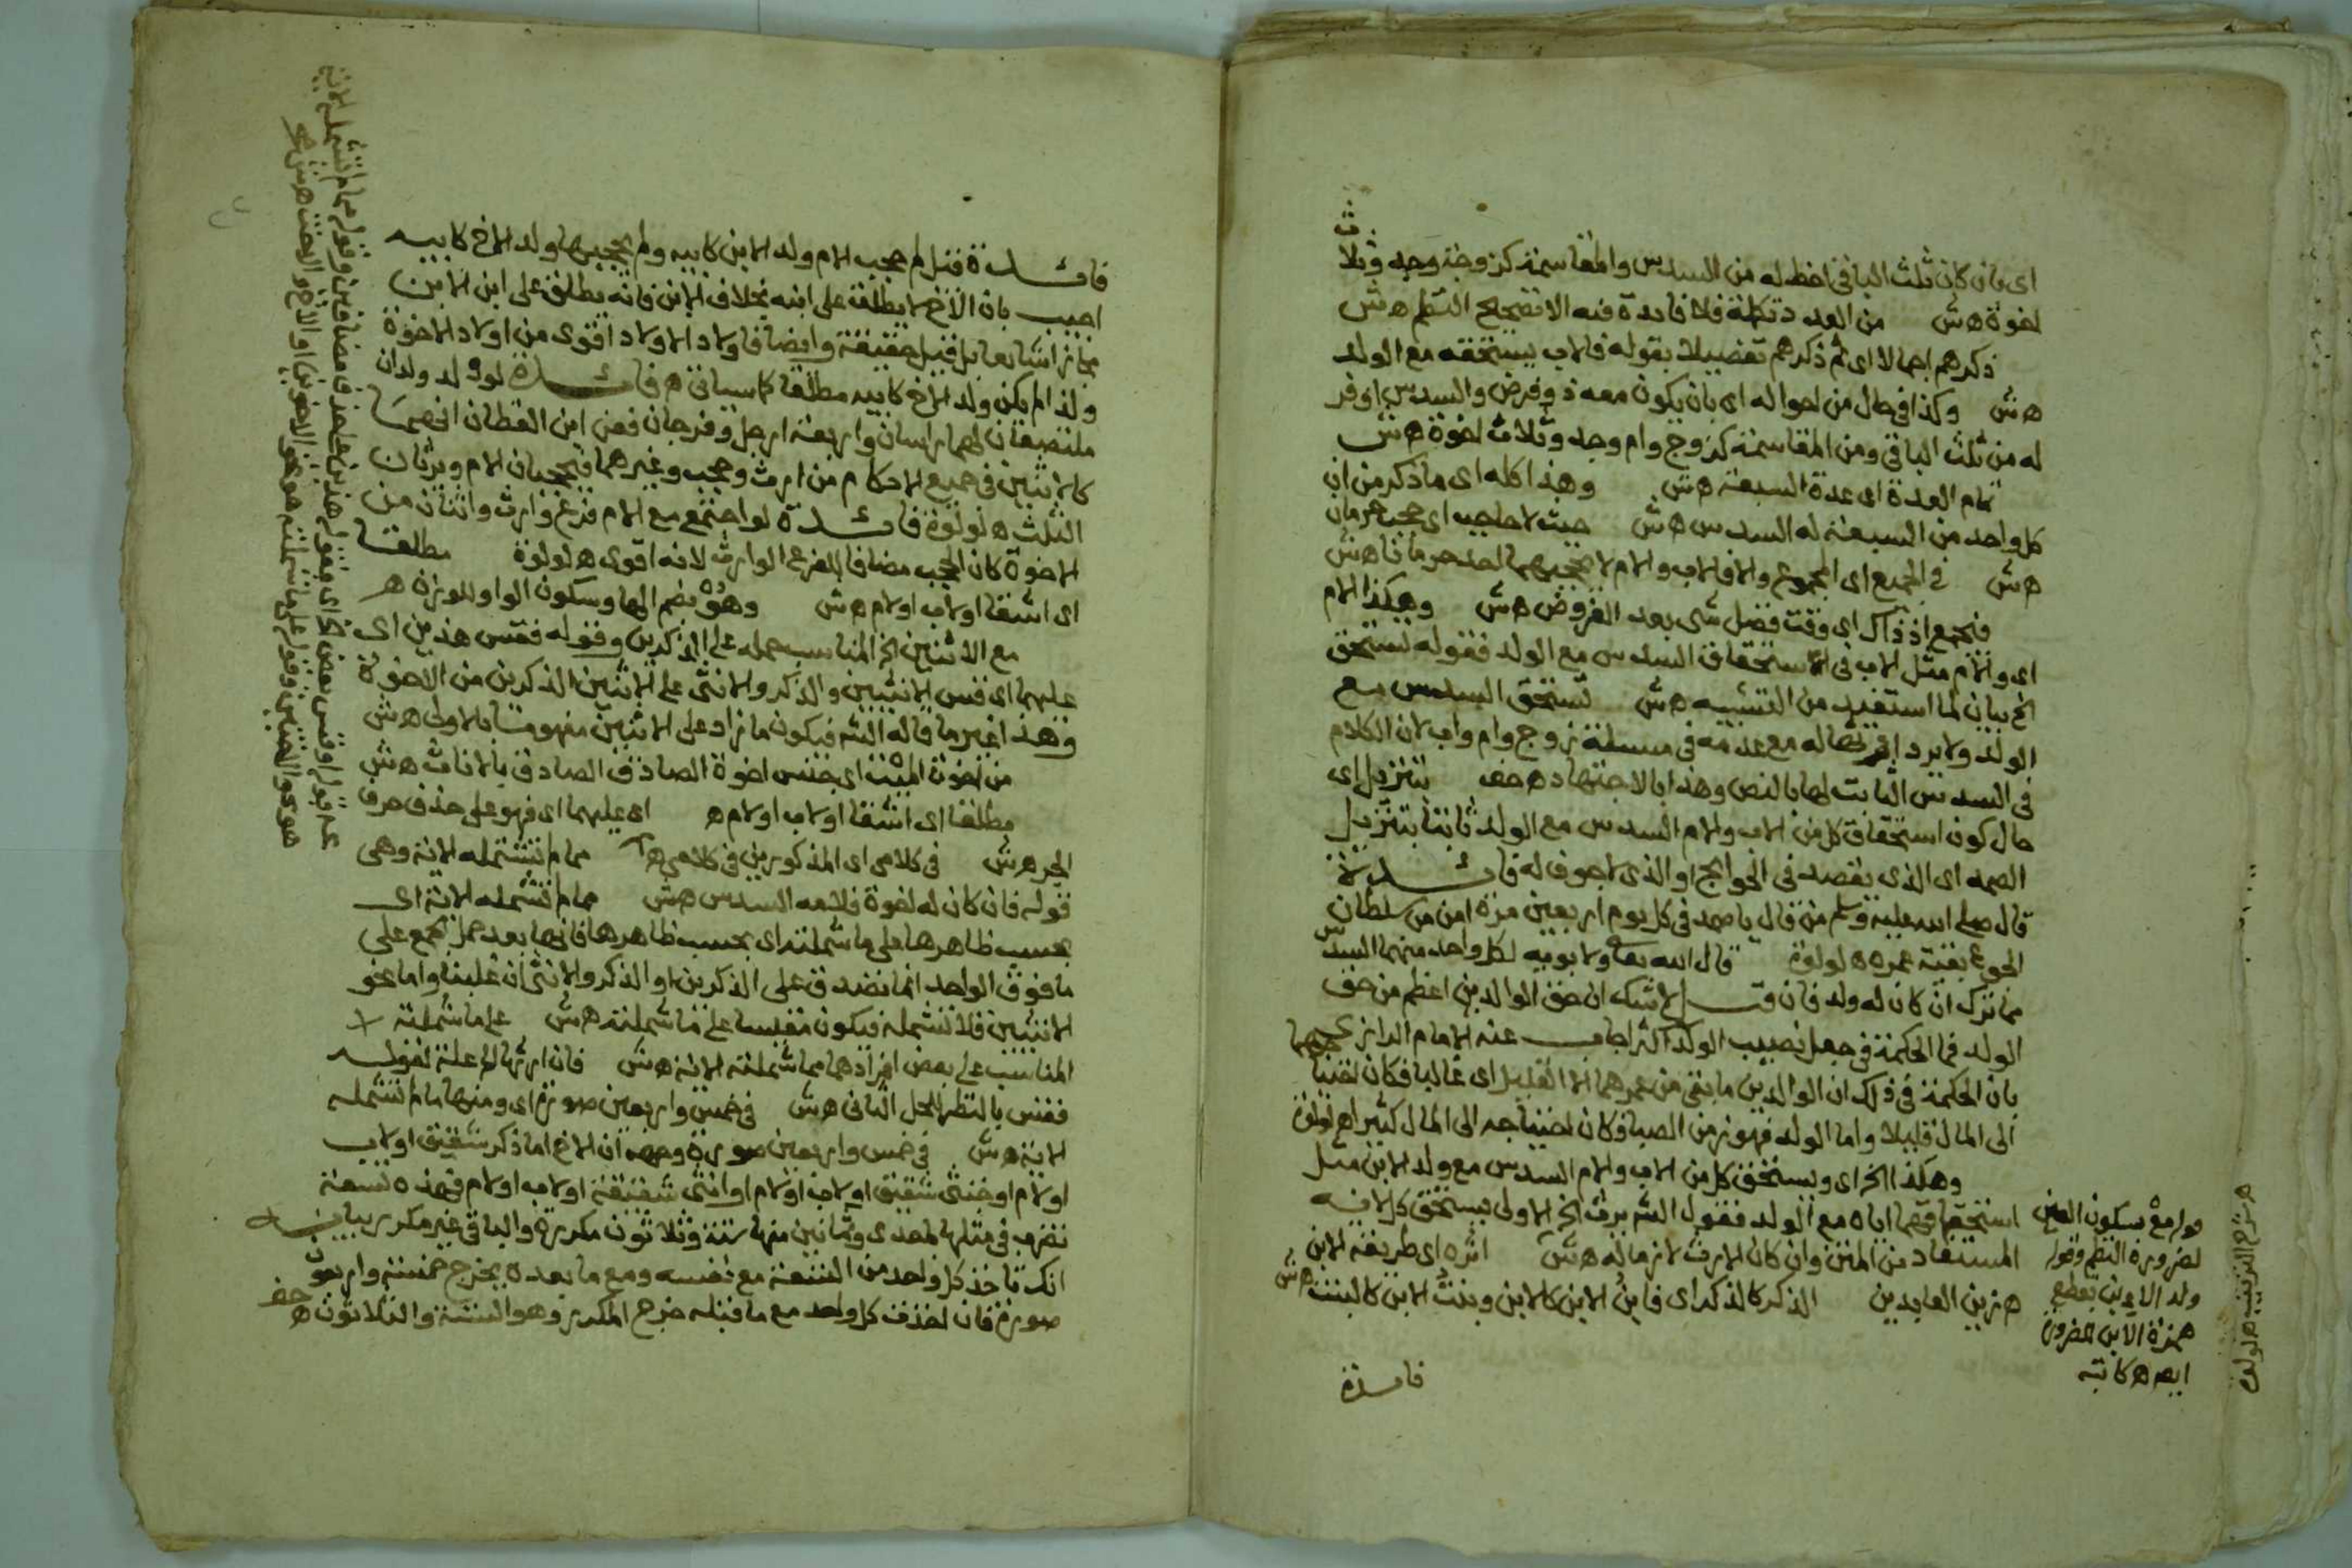 اى بان كان ثلث الباقى احظ له من السدس والمقاسمة كزوجة وجد وثلاث
اخوة هش من العدد تكملة فلا فايدة فيه الا تصحيح النظم هش
ذكرهم اجمالا اى ثم ذكرهم تفصيلا بقوله فالاب يستحقه مع الولد
هش وكذا فى حال من احواله اى بان يكون معه ذو فرض والسدس اوفر
له من ثلث الباقى ومن المقاسمة كزوج وام وجد وثلاث اخوة هش
تمام العدة اى عدة السبعة هش وهذا كله اى ما ذكر من ان
كل واحد من السبعة له السدس هش حيث لا حاجب اى حجب حرمان
هش فى الجميع اى المجموع والا فالاب والام لا يحجبهما احد حرمانا هش
فيجمع اذ ذاك اى وقت فضل شى بعد الفروض هش وهكذا الام
اى والام مثل الاب فى استحقاق السدس مع الولد فقوله تستحق
الخ بيان لما استفيد من التشبيه هش تستحق السدس مع
الولد ولا يرد اخذها له مع عدمه فى مسئلة زوج وام واب لان الكلام
فى السدس الثابت لها بالنص وهذا بالاجتهاد هـ حف بتنزيل اى
حال كون استحقاق كل من الاب والام السدس مع الولد ثابتا بتنزيل
الصمد اى الذى يقصد فى الحوايج او الذى لا جوف له فائدة
قال صلى الله عليه وسلم من قال يا صمد فى كل يوم اربعين مرة امن من سلطان
الجوع بقية عمره هـ لولوة قال الله تعا ولابويه لكل واحد منهما السدس
مما ترك ان كان له ولد فان قيل لا شك ان حق الوالدين اعظم من حق
الولد فما الحكمة فى جعل نصيب الولد اكثر اجاب عنه الامام الرازى
بان الحكمة فى ذلك ان الوالدين ما بقى من عمرهما الا القليل اى غالبا فكان احتياجهما
الى المال قليلا واما الولد فهو فى زمن الصبا فكان احتياجه الى المال كثيرا هـ لولوة
وهكذا الخ اى ويستحق كل من الاب والام السدس مع ولد الابن مثل
استحقاقهما اياه مع الولد فقول الش يرث الخ الاولى يستحق كل لانه
المستفاد من المتن وان كان الارث لازما له هش اثره اى طريقة الابن
هـ زين العابدين الذكر كالذكر اى فابن الابن كالابن وبنت الابن كالبنت هش
قوله مع بسكون العين
لضرورة النظم وقوله
ولد الابن بقطع
همزة الابن لضرورة
ايضا هـ كاتبه
هـ شرح الترتيب هـ لولوة
فائدة
فائدة فان قيل لم حجب الام ولد الابن كابيه ولم يحجبها ولد الاخ كابيه
اجيب بان الاخ لا يطلق على ابنه بخلاف الابن فانه يطلق على ابن الابن
مجازا شايعا بل قيل حقيقة وايضا فاولاد الاولاد اقوى من اولاد الاخوة
ولذا لم يكن ولد الاخ كابيه مطلقا كما سياتى هـ فائدة لو ولد ولدان
ملتصقان لهما راسان واربعة ارجل وفرجان فعن ابن القطان انهما
كالاثنين فى جميع الاحكام من ارث وحجب وغيرهما فيحجبان الام ويرثان
الثلث هـ لولوة فائدة لو اجتمع مع الام فرع وارث واثنان من
الاخوة كان الحجب مضافا للفرع الوارث لانه اقوى هـ لولوة مطلقا
اى اشقا او لاب او لام هش وهو بضم الها وسكون الواو للوزن هـ
مع الاثنين الخ المناسب حمله على الذكرين وقوله فقس هذين اى
عليهما اى قس الانثيين والذكر والانثى على الاثنين الذكرين من الاخوة
وهذا غير ما قاله الش فيكون ما زاد على الاثنين مفهوما بالاولى هش
من اخوة الميت اى جنس اخوة الصادق بالاناث هش
مطلقا اى اشقا او لاب او لام هـ اى عليهما اى فهو على حذف حرف
الجر هش فى كلامى اى المذكورين فى كلامى هـ مما لم تشمله الاية وهى
قوله فان كان له اخوة فلامه السدس هش مما لم تشمله الاية اى
بحسب ظاهرها على ما شملته اى بحسب ظاهرها فانها بعد حمل الجمع على
ما فوق الواحد انما تصدق على الذكرين او الذكر والانثى ان غلبنا واما نحو
الانثيين فلا تشمله فيكون مقيسا على ما شملته هش على ما شملته
المناسب على بعض افرادها مما شملته الاية هش فان ارثها الخ علة لقوله
فقس بالنظر للمحل الثانى هش فى خمس واربعين صورة اى ومنها ما لم تشمله
الاية هش فى خمس واربعين صورة وجهه ان الاخ اما ذكر شقيق او لاب
او لام او خنثى شقيق او لاب او لام او انثى شقيقة او لاب او لام فهذه تسعة
تضرب فى مثلها باحدى وثمانين منها ستة وثلاثون مكررة والباقى غير مكرر بيانه
انك تاخذ كل واحد من التسعة مع نفسه ومع ما بعده يخرج خمسة واربعون
صورة فان اخذت كل واحد مع ما قبله خرج المكرر وهو الستة والثلاثون هـ حف